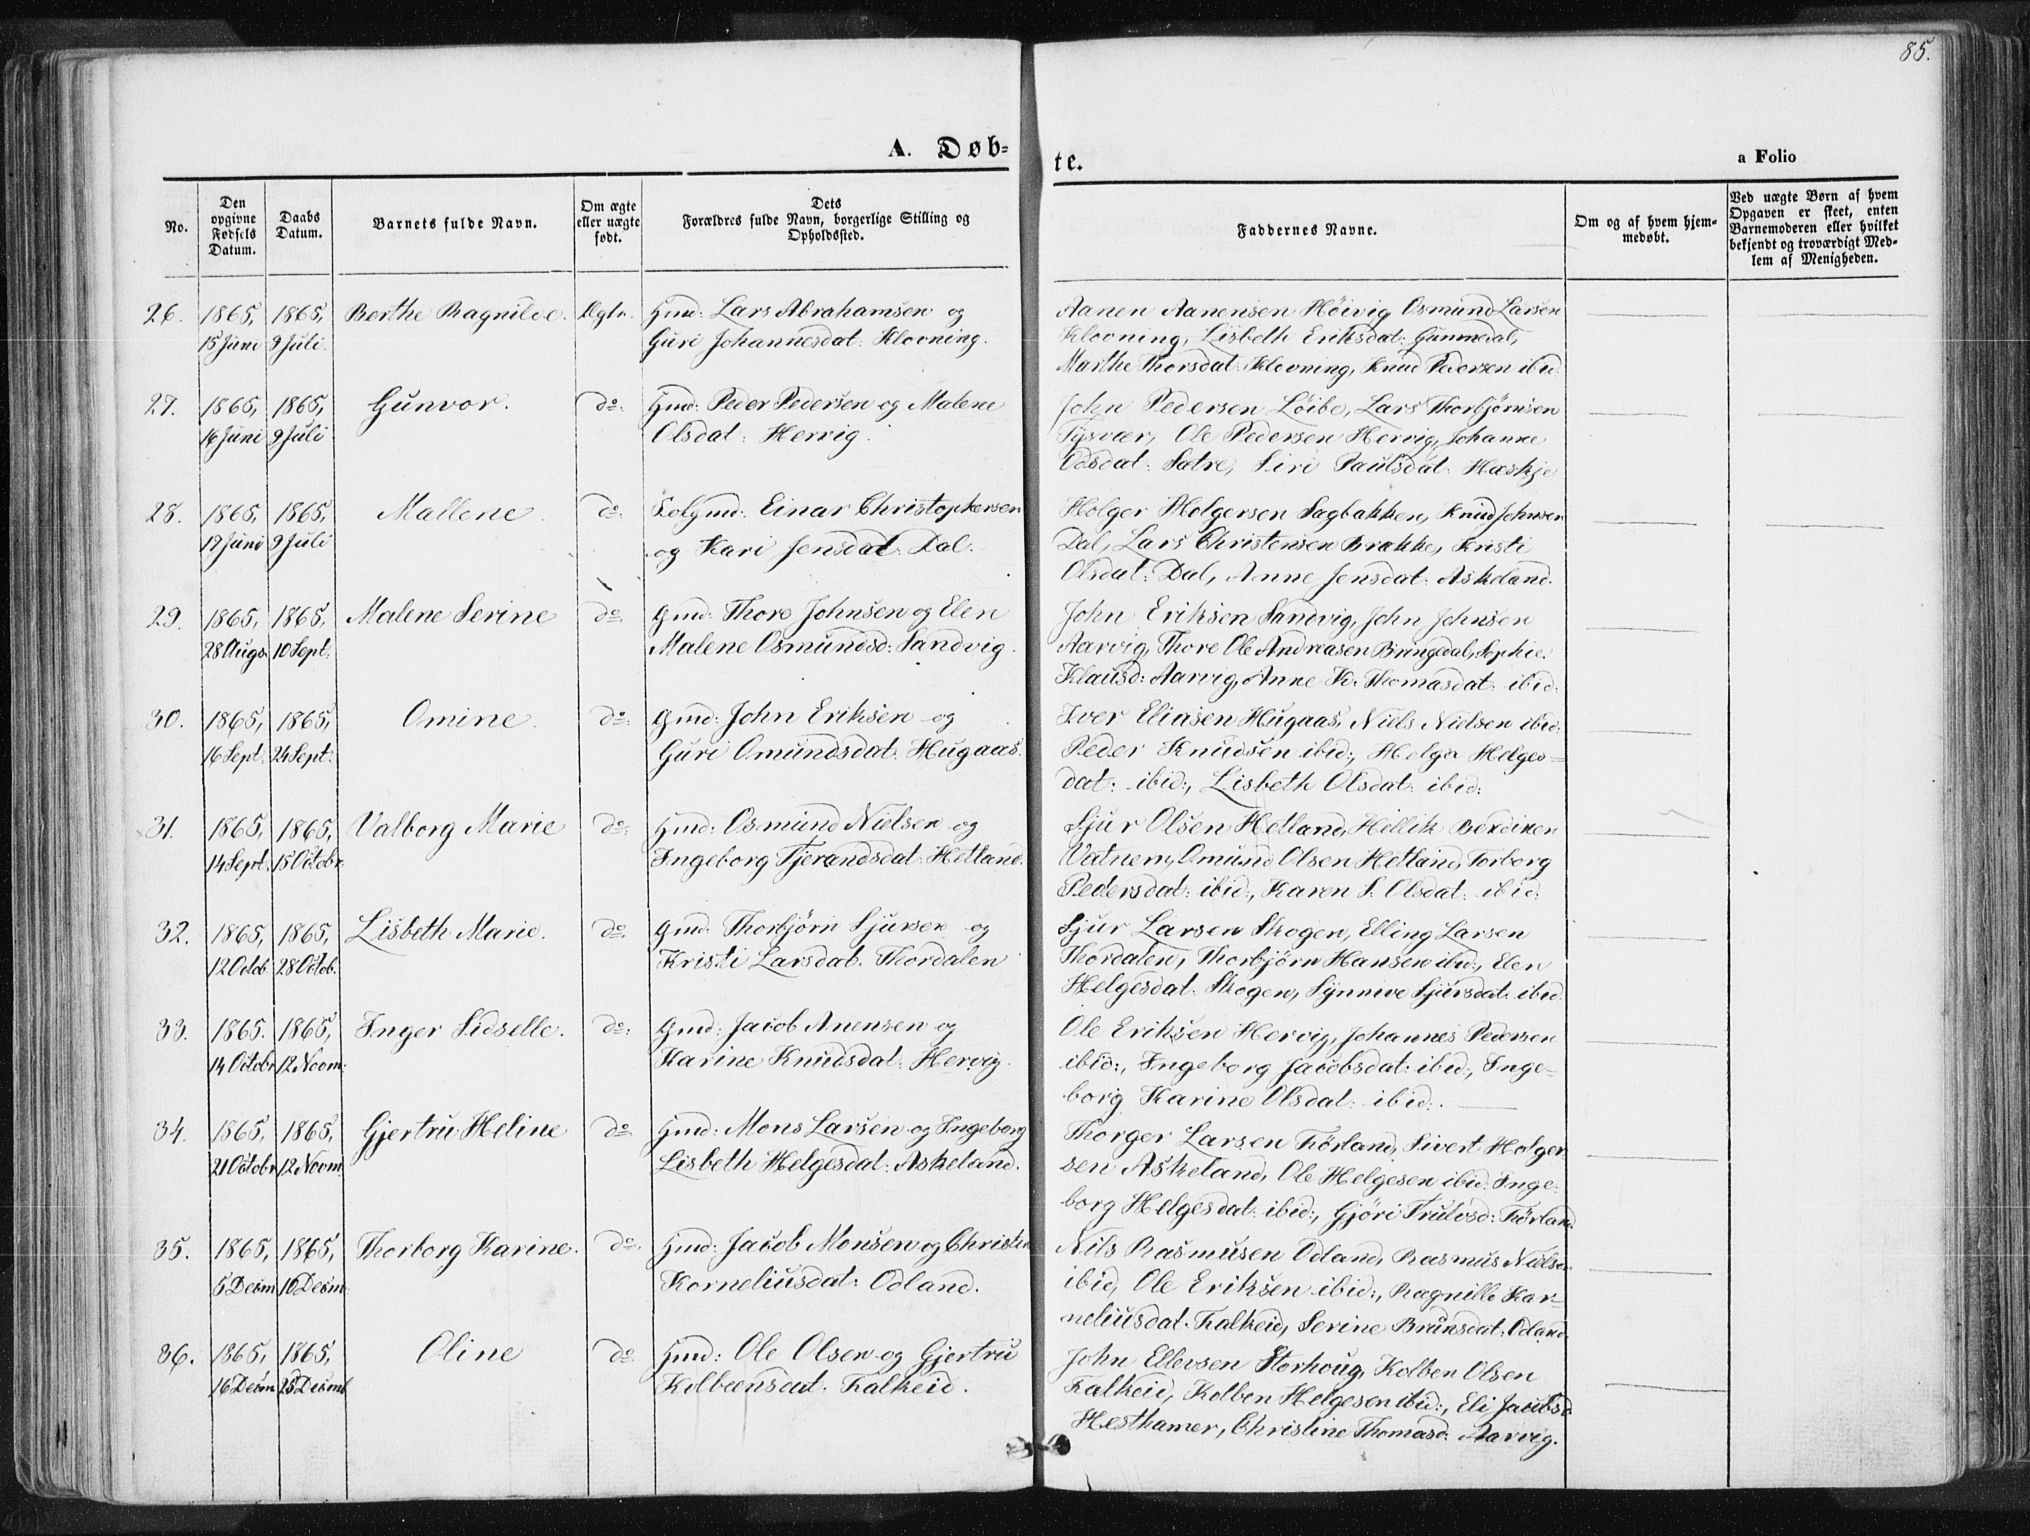 85.
A. Døb-
te.
a Folio
No.
Den opgivne Fødsels Datum.
Daabs Datum.
Barnets fulde Navn.
Om ægte eller uægte født.
Dets Forældres fulde Navn, borgerlige Stilling og Opholdssted.
Faddernes Navne.
Om og af hvem hjemmedøbt.
Ved uægte Børn af hvem Opgaven er skeet, enten Barnemoderen eller hvilket bekjendt og troværdigt Medlem af Menigheden.
26. 1865, 1865, Berthe Ragnilde. Ægte. Gmd: Lars Abrahamsen og
15 Juni 9 Juli. Guri Johannesdat: Klovning.
Aanen Aanensen Høivig Osmund Larsen
Klovning, Lisbeth Eriksdat: Gunnedal,
Marthe Thorsdat: Klovning, Knud Pedersen ibid
27. 1865, 1865, Gunvor. do: Gmd: Peder Pedersen og Malene
16 Juni 9 Juli Olsdat: Hervig.
John Pedersen Løibe, Lars Thorbjørnsen
Tysvær, Ole Pedersen Hervig, Johanne
Odsdat: Sætre, Siri Paulsdat: Haskje
28. 1865, 1865, Mallene. do: Gmd: Einar Christophersen
19 Juni 9 Juli og Kari Jensdat: Dal.
Holger Holgersen Sagbakken, Knud Johnsen
Dal, Lars Christensen Brække, Kristi
Olsdat: Dal, Anne Jensdat: Askeland.
29. 1865, 1865, Malene Serine do. Gmd: Thore Johnsen og Elen
28 Augs. 10 Sept: Malene Osmundsd: Sandvig.
John Eriksen Sandvig, John Johnsen
Aarvig, Thore Ole Andreasen Bringedal, Sophie
Klausd: Aarvig, Anne K. Thomasdat: ibid:
30. 1865, 1865, Omine. do: Gmd: John Eriksen og
16 Sept: 24 Sept: Guri Omundsdat: Hugaas.
Iver Eliasen Hugaas, Niels Nielsen ibid:
Peder Knudsen ibid:, Helga Helges-
dat: ibid:, Lisbeth Olsdat: ibid:
31. 1865, 1865, Valborg Marie do: Gmd: Osmund Nielsen og
14 Sept: 15 Octobr. Ingeborg Tjerandsdat: Hetland.
Sjur Olsen Hetland, Hellik
Vatnem, Omund Olsen Hetland, Torborg
Pedersdat: ibid:, Karen S. Olsdat: ibid:
32. 1865, 1865, Lisbeth Marie. do. Gmd: Thorbjørn Sjursen og
12 Octob 28 Octob. Kristi Larsdat. Thordalen
Sjur Larsen Skogen, Elling Larsen
Thordalen, Thorbjørn Hansen ibid:, Elen
Helgesdat: Skogen, Synneve Sjursdat: ibid
33. 1865. 1865, Inger Sidselle. do: Gmd: Jacob Anensen og
14 Octobr 12 Novm: Karine Knudsdat: Hervig.
Ole Eriksen Hervig, Johannes Pedersen
ibid:, Ingeborg Jacobsdat: ibid:, Inge-
borg Karine Olsdat: ibid:.
34. 1865, 1865, Gjertru Heline do: Gmd: Mons Larsen og Ingeborg
21 Octobr 12 Novm. Lisbeth Helgesdat: Askeland.
Thorger Larsen Førland, Sivert Holger
sen Askeland, Ole Helgesen ibid: Inge-
borg Helgesdat: ibid:, Gjøri Trulsd: Førland
35. 1865, 1865, Thorborg Karine. do. Gmd: Jacob Monsen og Christi
5 Decm 10 Decm. Korneliusdat: Odland.
Nils Rasmusen Odland, Rasmus Nielsen
ibid, Ole Eriksen ibid:, Ragnille Kor-
neliusdat. Falkeid, Serine Brunsdat: Odland.
36. 1865, 1865, Oline do. Gmd: Ole Olsen og Gjertru
16 Decm 25 Decmb Kolbeensdat. Falkeid.
John Ellevsen Storhoug, Kolben Olsen
Falkeid, Kolben Helgesen ibid:, Eli Jacobsd
Hesthamer, Christine Thomasd: Aarvig.